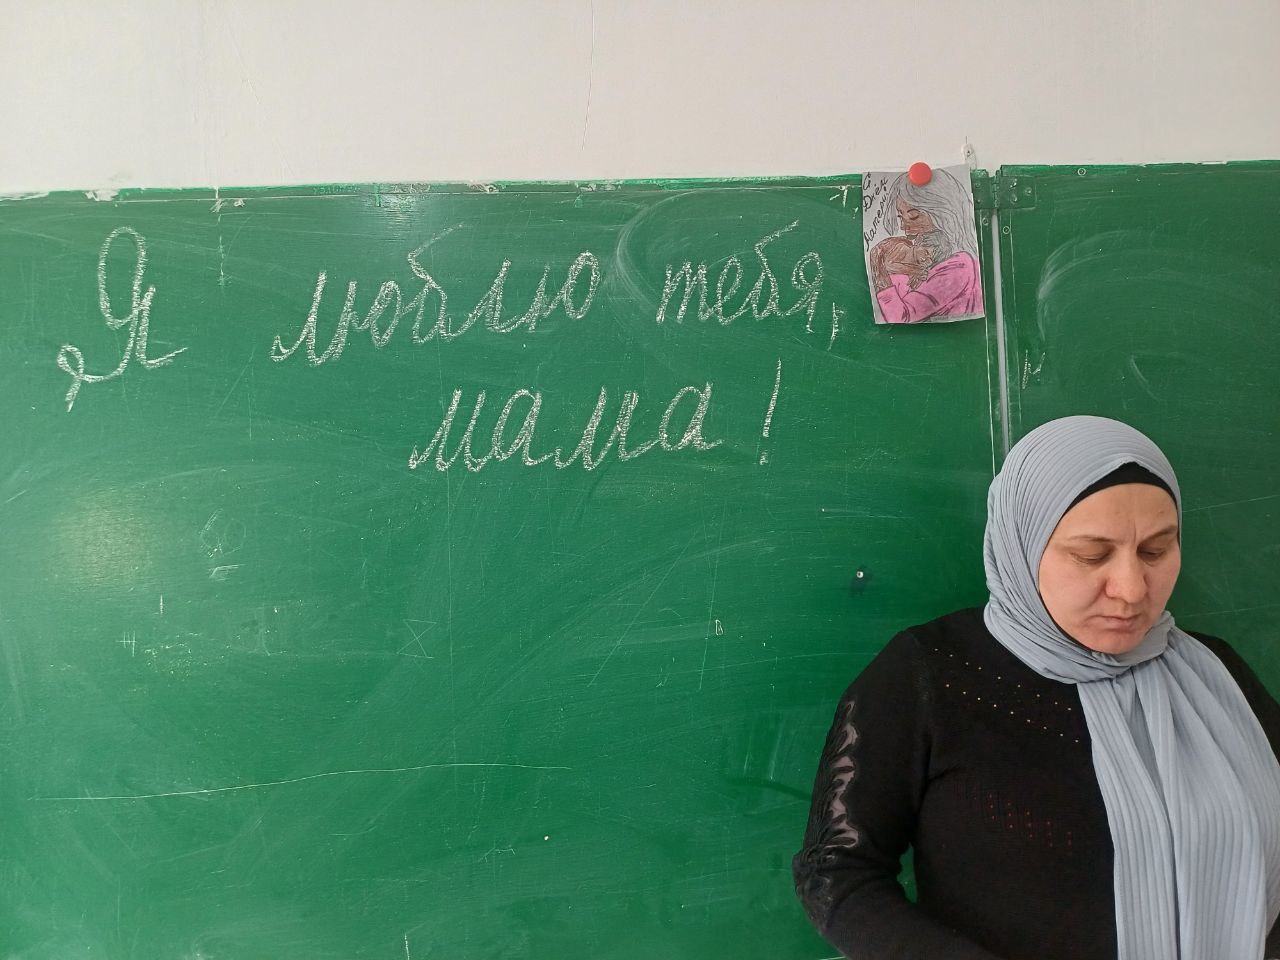 Я люблю тебя,
мама!
С
Днём
Матери!